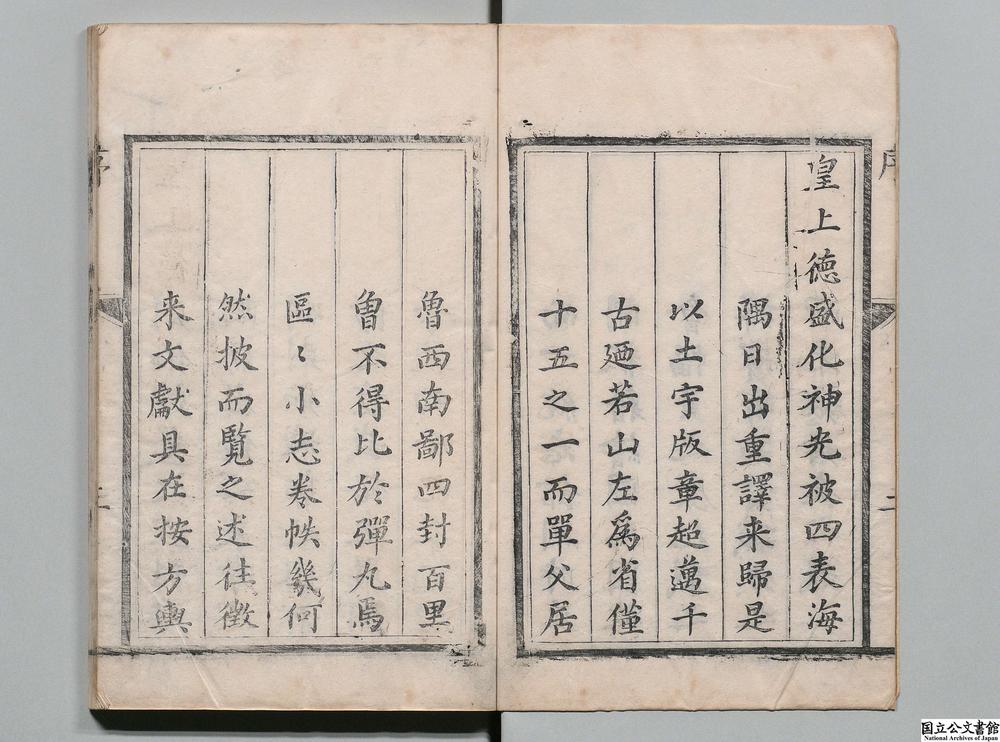 皇上德盛化神光被四表海
隅日出重譯来歸是
以土宇版章超邁千
古廼若山左爲省僅
十五之一而單父居
魯西南鄙四封百里
曽不得比於彈九焉
區〻小志卷帙幾何
然披而覧之述徃徴
来文獻具在按方輿
序
二
国立公文書館
National Archives of Japan